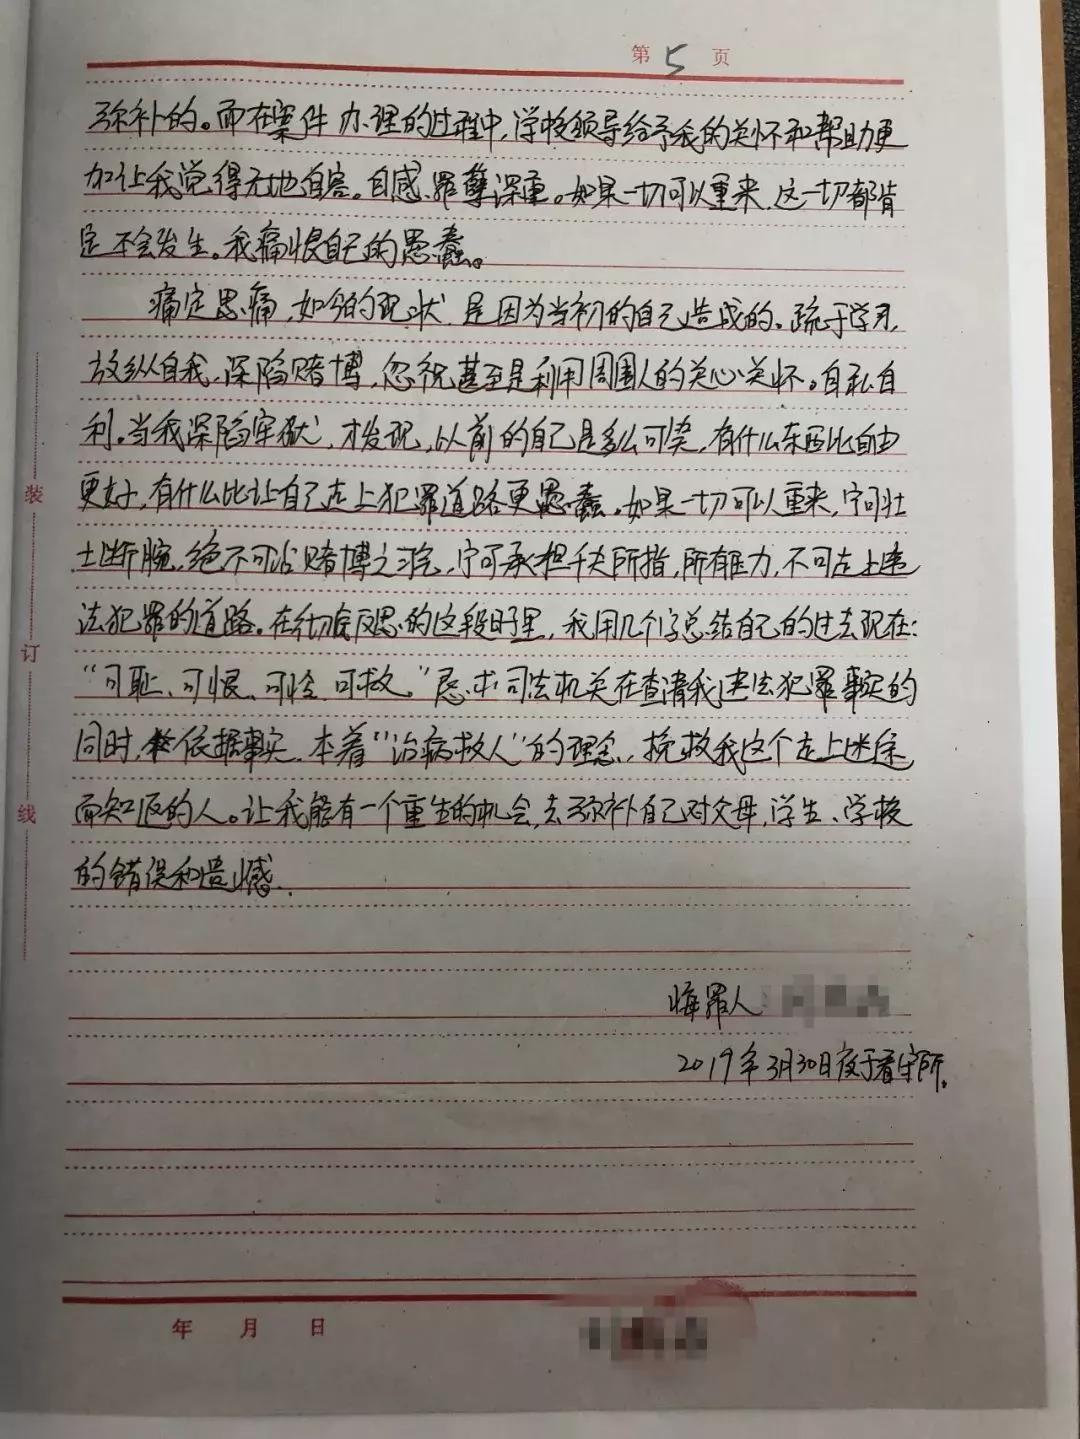 第5页
弥补的。而在案件办理的过程中,学校领导给予我的关怀和帮助更
加让我觉得无地自容。自感罪孽深重。如果一切可以重来,这一切都肯
定不会发生。我痛恨自己的愚蠢。
痛定思痛,如今的现状,是因为当初的自己造成的。疏于学习,
放纵自我,深陷赌博,忽视甚至是利用周围人的关心关怀。自私自
利。当我深陷牢狱,才发现,以前的自己是多么可笑,有什么东西比自由
更好,有什么比让自己走上犯罪道路更愚蠢。如果一切可以重来,宁可壮
士断腕,绝不可沾赌博之习,宁可承担千夫所指,所有压力,不可走上违
法犯罪的道路。在彻夜反思的这段日子里,我用几个字总结自己的过去现在:
“可耻、可恨、可怜、可救。”恳求司法机关在查清我违法犯罪事实的
同时,依据事实,本着“治病救人”的理念,挽救我这个走上迷途
而知返的人。让我能有一个重生的机会,去弥补自己对父母,学生、学校
的错误和遗憾.
悔罪人:
2019年3月30日夜于看守所。
年 月 日
装
订
线